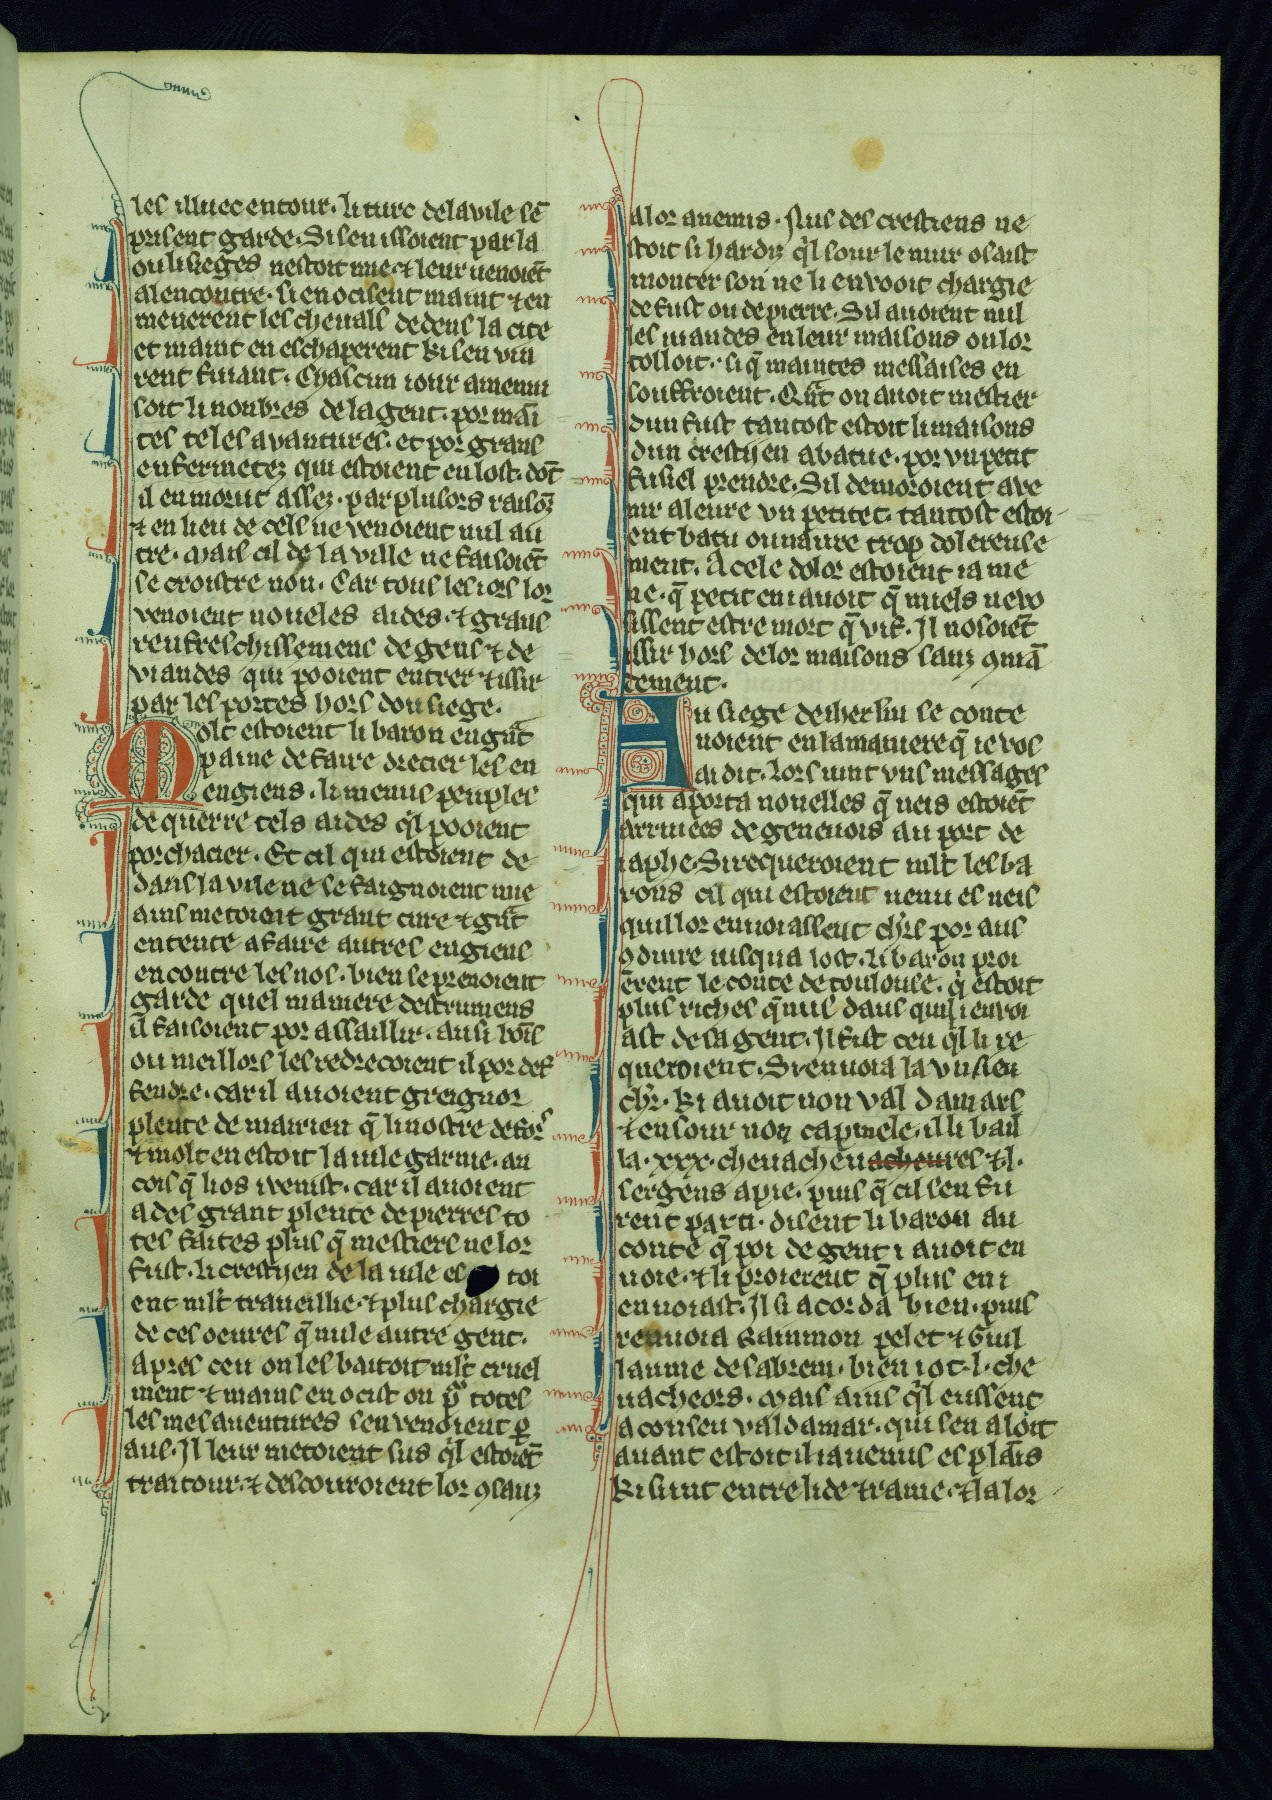 les illuec entour. li turc de la vile sē
prisent garde. Si sen issoient par la
ou li sieges nestoit mie. ⁊ leur uenoiēt
alencontre. si en ocisent maint ⁊ en
menerent les cheuals dedens la cite
et maint en eschaperent ki sen vin
rent fuiant. Chascun iour amenui
soit li nonbres de la gent. por māī
tes teles avantures. et por grans
enfermetez qui estoient en lost. dōt
il en morut assez. par plusors raisōz
⁊ en lieu de cels ne venoient nul au
tre. Mais cil de la ville ne faisoiēt
se croistre non. Car tous les iors lor
venoient noueles aides. ⁊ grans
renfreschissemens de gens ⁊ de
viandes qui pooient entrer ⁊ issir
par les portes hors dou siege.
Molt estoient li baron en gn̄t
paine de faire drecier les en
engiens. li menus peuples
de querre tels aides ql pooient
porchacier. Et cil qui estoient de
dans la vile ne se faignoient mie
ains metoient grant cure ⁊ gn̄t
entente a faire autres engiens
encontre les nos. bien se prenoient
garde quel maniere destrumens
il faisoient por assaillir. ausi bōs
ou meillors les redrecoient il por def
fendre. car il auoient greignor
plente de mairien q̄ li nostre defors
⁊ molt en estoit la uile garnie. an
cois q̄ lios i venist. car il auoient
ades grant plente de pierres to
tes faites plus q̄ mestiers ne lor
fust. li crestyen de la uile es toi
ent mlt traueillie. ⁊ plus chargie
de ces oeures q̄ nule autre gent.
apres ceu on les batoit mlt cruel
ment ⁊ mains en ocist on pͣ totes
les mesauentures sen venoient ꝑ
aus. Il leur metoient sus ql estoiēt
traitour. ⁊ descouroient lor ꝯsauz
a lor anemis. Nus des crestiens ne
stoit si hardiz ql sour le mur osaist
monter son ne li envooit chargie
de fust ou de pierre. Sil auoient nul
les uiandes en leur maisons on lor
tolloit. si q̄ maintes mesaises en
souffroient. Qn̄t on auoit mestier
dun fust tantost estoit li maisons
dun crestyen abatue. por vn petit
fusiel prendre. Sil demoroient a ve
nir a leure vn petitet. tantost estoi
ent batu ou naure trop dolereuse
ment. A cele dolor estoient ia me
ne. q̄ petit en i auoit q̄ miels ne vo
sissent estre mort q̄ vif. Il nosoiēt
issir hors de lor maisons sanz ꝯmā
dement.
Au siege de iherlm se conte
noient en la maniere q̄ ie vos
ai dit. Lors uint vns messages
qui aporta nouelles q̄ neis estoiēt
arriuees de geneuois au port de
iaphe. Si requeroient mlt les ba
rons cil qui estoient uenu es neis
quil lor enuoiassent chrs por aus
ꝯduire iusqua lost. li baron proi
erent le conte de toulouse. q̄ estoit
plus riches q̄ nus daus quil i envoi
ast de sa gent. Il fist ceu ql li re
queroient. Si enuoia la vn sien
chr. ki auoit non val damars
⁊ en sour non capinele. il li bail
la .xxx. cheuacheuacheures ⁊ .l.
sergens a pie. puis q̄ cil sen fu
rent parti. disent li baron au
conte q̄ poi de gent i auoit en
uoie. ⁊ li proierent q̄ plus en i
enuoiast. Il si acorda bien. puis
renuoia Raimmon pelet ⁊ Guil
laume de sabrem. bien i ot .l. che
uacheors. Mais ains ql eussent
aconseu valdamar. qui sen aloit
auant estoit il ia uenus es plāīs
ki siunt entre lide ⁊ rame. ⁊ la lor